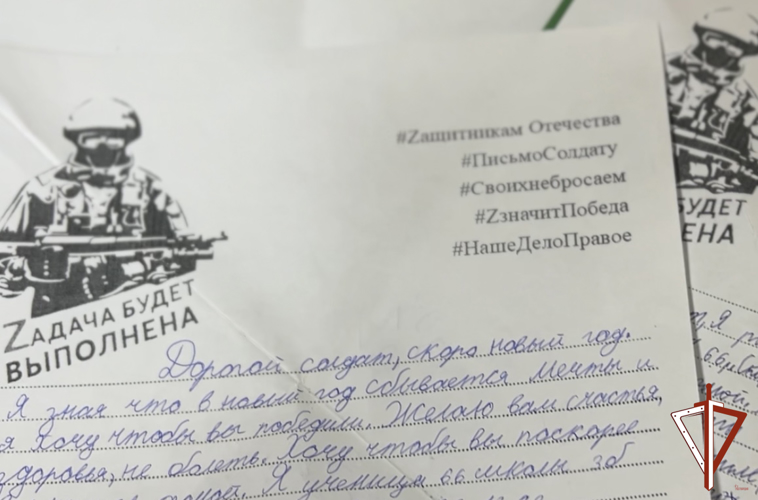 #Zащитникам Отечества
#ПисьмоСолдату
#Своихнебросаем
#ZзначитПобеда
#НашеДелоПравое
ZАДАЧА БУДЕТ
ВЫПОЛНЕНА
Дорогой солдат, скоро новый год.
Я знаю что в новый год сбывается мечты и
я хочу чтобы вы победили. Желаю вам счастья,
здоровья, не болеть. Хочу чтобы вы поскорее
Я ученица 66 школы 3б
БУДЕТ
ЕНА